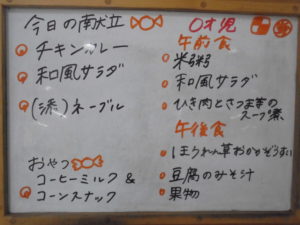 今日の献立
チキンカレー
和風サラダ
(添)ネーブル
おやつ
コーヒーミルク &
コーンスナック
0才児
午前食
米粥
和風サラダ
ひき肉とさつま芋の
スープ煮
午後食
ほうれん草おかかぞうすい
豆腐のみそ汁
果物